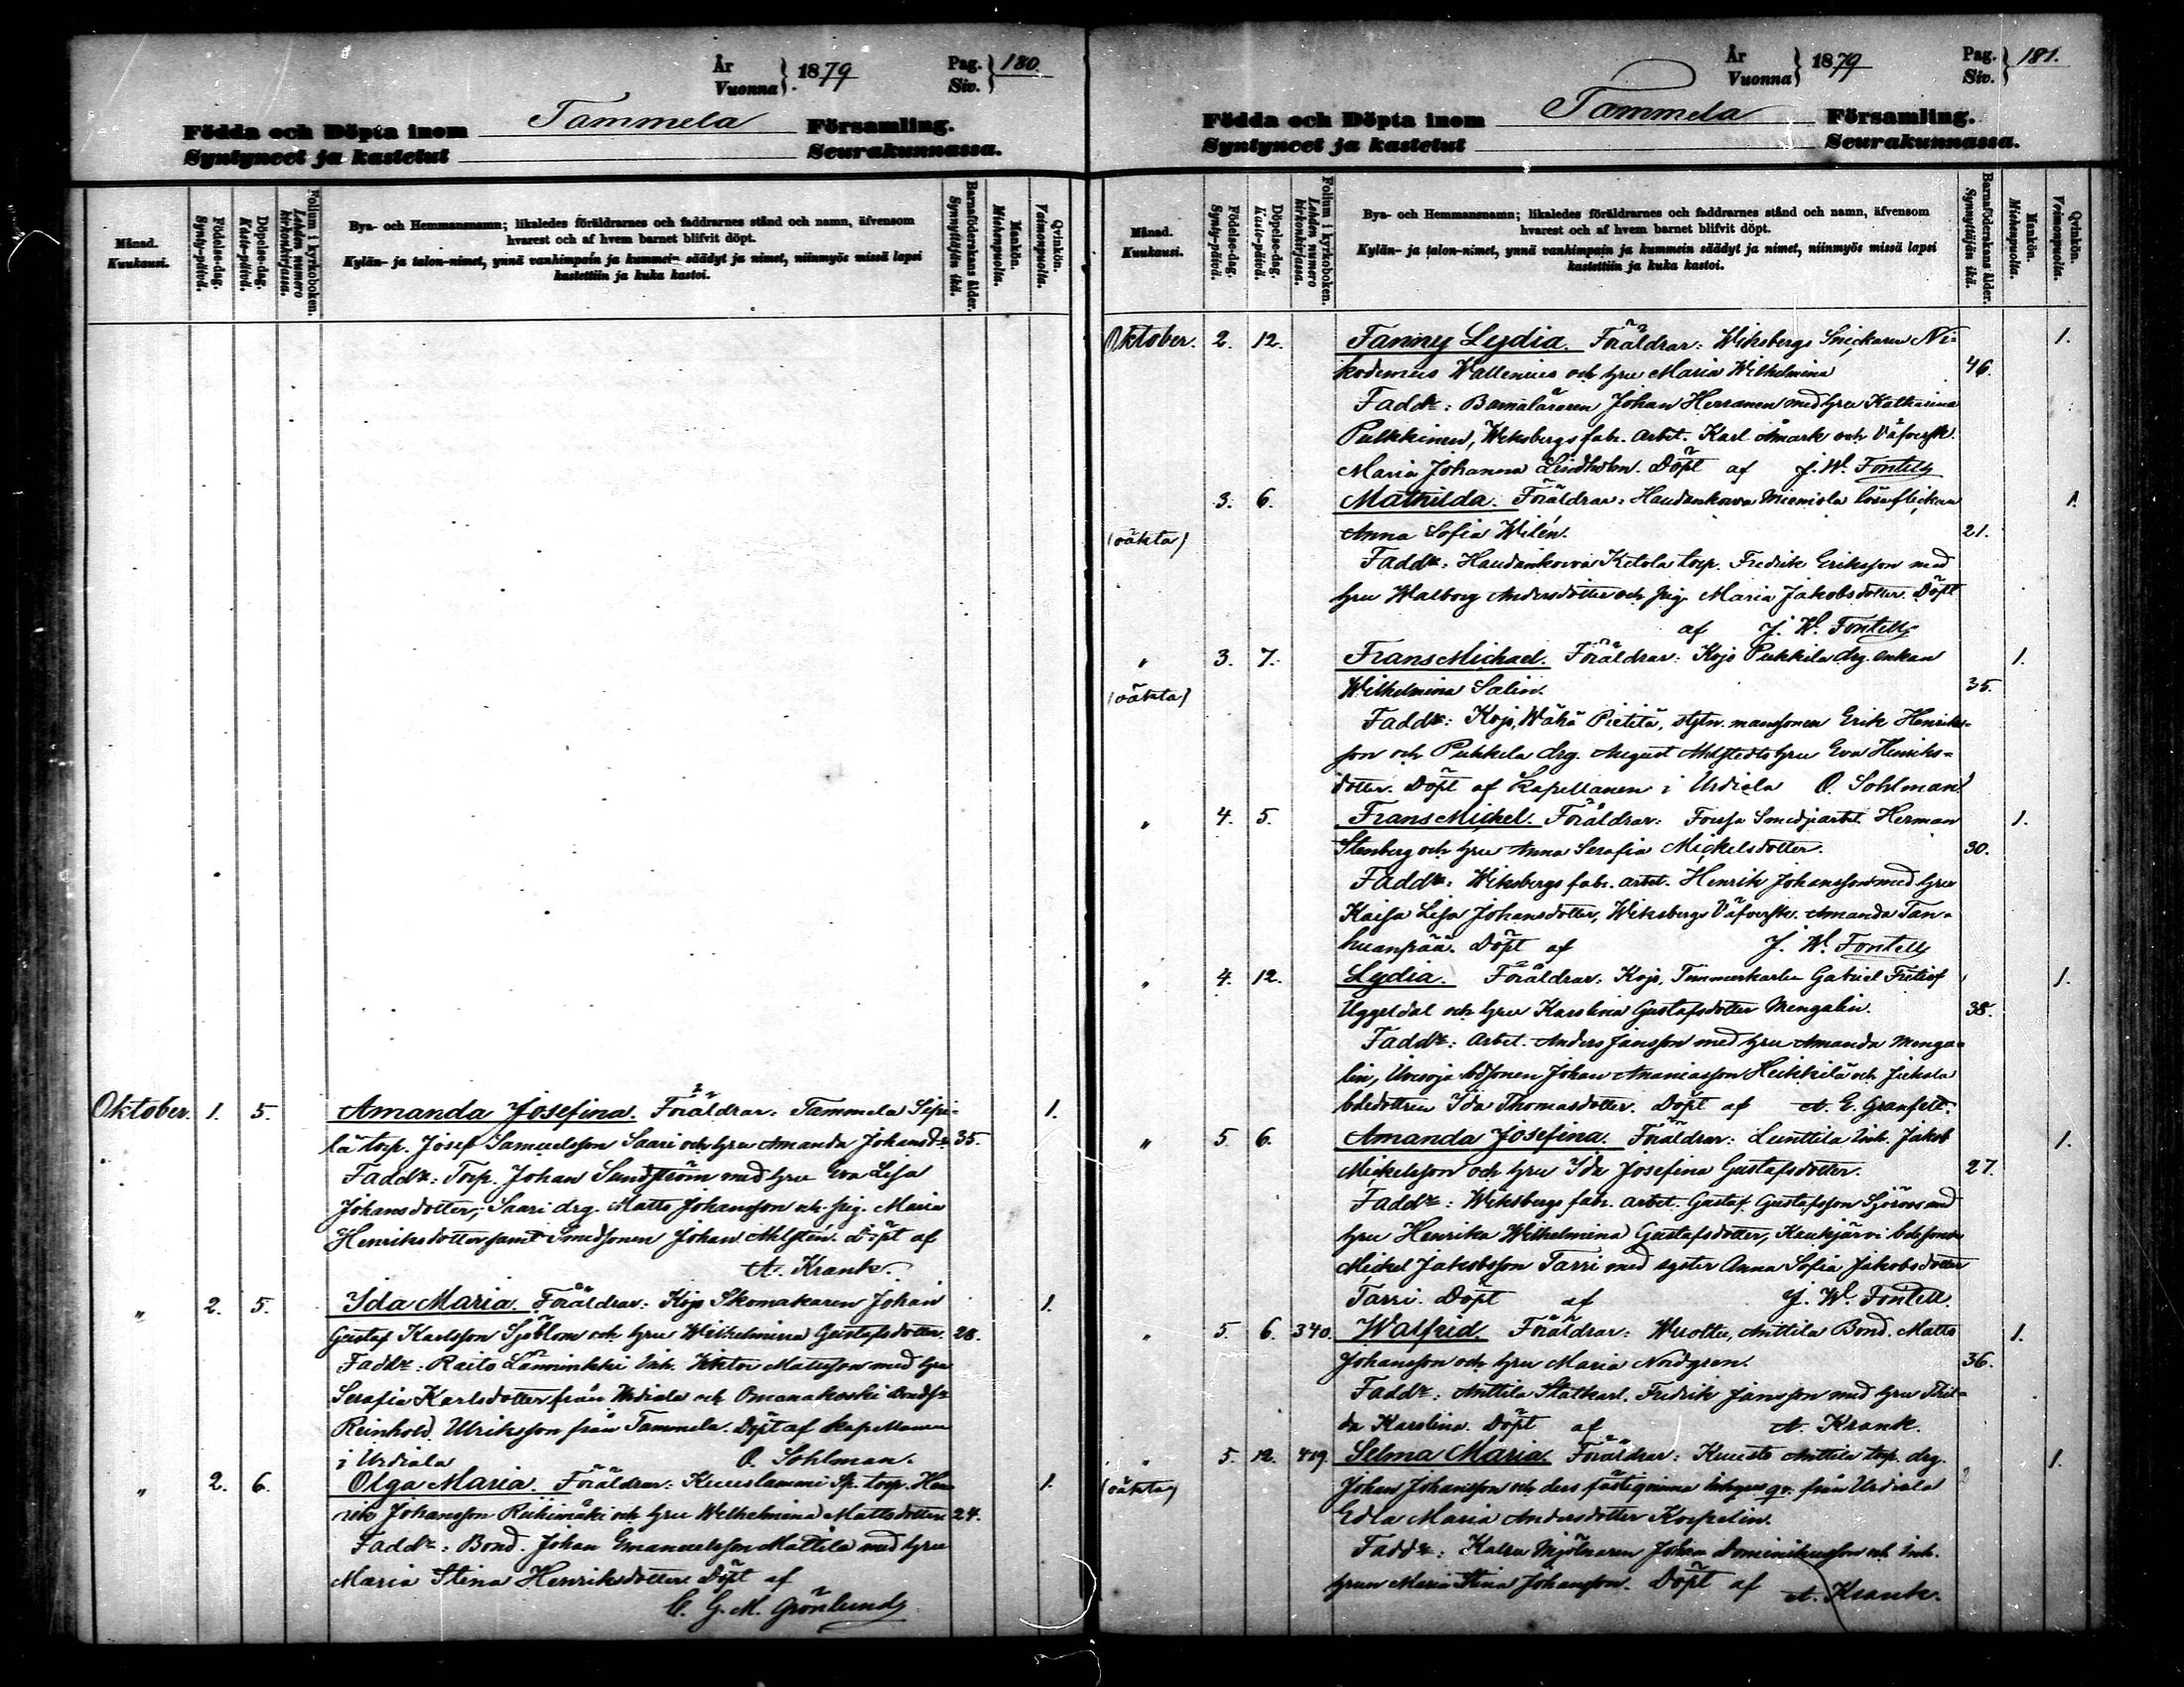 År
Vuonna } 1879
Pag.
Siv. } 180.
Födda och Döpta inom Tammela Församling.
Syntyneet ja kastetut Seurakunnassa.
Månad.
Kuukausi.
Födelse-dag.
Synty-päivä.
Döpelse-dag.
Kaste-päivä.
Folium i kyrkoboken.
Lehden numero kirkonkirjassa.
Bya- och Hemmansnamn; likaledes föräldrarnes och faddrarnes stånd och namn, äfvensom
hvarest och af hvem barnet blifvit döpt.
Kylän- ja talon-nimet, ynnä vanhimpain ja kummein säädyt ja nimet, niinmyös missä lapsi
kastettiin ja kuka kastoi.
Barnaföderskans ålder.
Synnyttäjän ikä.
Mankön.
Miehenpuolia.
Qvinkön.
Vaimonpuolia.
Oktober. 1. 5. Amanda Josefina. Föräldrar: Tammela Sipi- 1.
lä torp. Josef Samuelsson Saari och hru Amanda Johansdr 35.
Faddr: Torp. Johan Sundström med hru Eva Lisa
Johansdotter; Saari drg. Matts Johansson och pig. Maria
Henriksdotter samt Smedsonen Johan Ahlstén. Döpt af
A. Krank.
" 2. 5. Ida Maria. Föräldrar: Kojo Skomakaren Johan 1.
Gustaf Karlsson Sjöblom och hru Wilhelmina Gustafsdotter. 28.
Faddr: Raito Länninkki Inh. Viktor Matsson med hru
Serafia Karlsdotter från Urdiala och Omanakoski
Reinhold Ulriksson från Tammela. Döpt af Kapellanen
i Urdiala O. Sohlman.
" 2. 6. Olga Maria. Föräldrar: Kuuslammi Sp. torp. Hen- 1.
rik Johansson Riihimäki och hru Wilhelmina Mattsdotter 24.
Faddr: Bond. Johan Emanuelsson Mattila med hru
Maria Stina Henriksdotter Döpt af
C. G. M. Grönlund
År
Vuonna } 1879
Pag.
Siv. } 181.
Födda och Döpta inom Tammela Församling.
Syntyneet ja kastetut Seurakunnassa.
Månad.
Kuukausi.
Födelse-dag.
Synty-päivä.
Döpelse-dag.
Kaste-päivä.
Folium i kyrkoboken.
Lehden numero kirkonkirjassa.
Bya- och Hemmansnamn; likaledes föräldrarnes och faddrarnes stånd och namn, äfvensom
hvarest och af hvem barnet blifvit döpt.
Kylän- ja talon-nimet, ynnä vanhimpain ja kummein säädyt ja nimet, niinmyös missä lapsi
kastettiin ja kuka kastoi.
Barnaföderskans ålder.
Synnyttäjän ikä.
Mankön.
Miehenpuolia.
Qvinkön.
Vaimonpuolia.
Oktober. 2. 12. Fanny Lydia. Föräldrar: Wiksbergs Snickaren Ni- 1.
kodemus Wallenius och hru Maria Wilhelmina 46.
Faddr: Barnaläraren Johan Herranen med hru Katharina
Pulkkinen, Wiksbergs fabr. arbet. Karl Åmark och Väfversk.
Maria Johanna Lindholm. Döpt af J. W. Fontell
3. 6. Mathilda. Föräldrar: Haudankorva lösa flickan 1.
(oäkta) Anna Sofia Wilén. 21.
Faddr: Haudankorva Ketola torp. Fredrik Eriksson med
hru Walborg Andersdotter och pig. Maria Jakobsdotter. Döpt
af J. W. Fontell
" 3. 7. Frans Michael. Föräldrar: Kojo Pukkila drg. enkan 1.
(oäkta) Wilhelmina Salin. 35.
Faddr: Kojo, Wähä Pietilä, Erik Henriks-
son och Pukkila drg. August Ahlstedts hru Eva Henriks-
dotter. Döpt af Kapellanen i Urdiala O. Sohlman
" 4. 5. Frans Mickel. Föräldrar: Forssa Smedjearbet. Herman 1.
Stenberg och hru Anna Serafia Mickelsdotter. 30.
Faddr: Wiksbergs fabr. arbet. Henrik Johansson med hru
Kaisa Lisa Johansdotter, Wiksbergs Väfversk. Amanda Tan-
huanpää. Döpt af J. W. Fontell
" 4. 12. Lydia. Föräldrar: Kojo, Timmerkarlen Gabriel Fritiof 1.
Uggeldal och hru Karolina Gustafsdotter Mengalin. 38.
Faddr: Arbet. Anders Jansson med hru Amanda Menga-
lin, bdsonen Johan Ananiasson Heikkilä och Jokela
bdedottren Ida Thomasdotter. Döpt af A. E. Granfelt.
" 5. 6. Amanda Josefina. Föräldrar: Lunttila Inh. Jakob 1.
Mickelsson och hru Ida Josefina Gustafsdotter. 27.
Faddr: Wiksbergs fabr. arbet. Gustaf Gustafsson Sjöroos med
hru Henrika Wilhelmina Gustafsdotter, Kaukjärvi bdesonen
Mickel Jakobsson Tarri med syster Anna Sofia Jakobsdotter
Tarri. Döpt af J. W. Fontell.
" 5. 6. 340. Walfrid. Föräldrar: Anttila Bond. Matts 1.
Johansson och hru Maria Nordgren. 36.
Faddr: Anttila Statkarl. Fredrik Jansson med hru Thil-
da Karolina. Döpt af A. Krank.
" 5. 12. 419. Selma Maria. Föräldrar: Kuusto Anttila torp. drg. 1.
(oäkta) Johan Johansson och dess fästeqvinna från Urdiala
Edla Maria Andersdotter Korpelin.
Faddr: Kalsu Mjölnaren Johan Dominikusson och Inh.
hrun Maria Stina Johansson. Döpt af A. Krank.